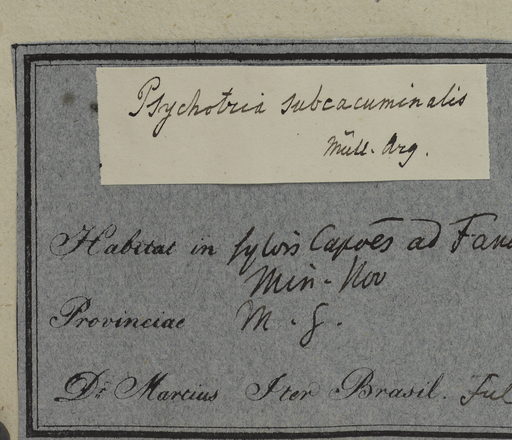 Psychotria subcacuminalis
Müll. Arg.
Habitat in sylvis Capoēs ad
Min - Nov
Provinciae M. g.
Dr. Martius Iter Brasil. Jul